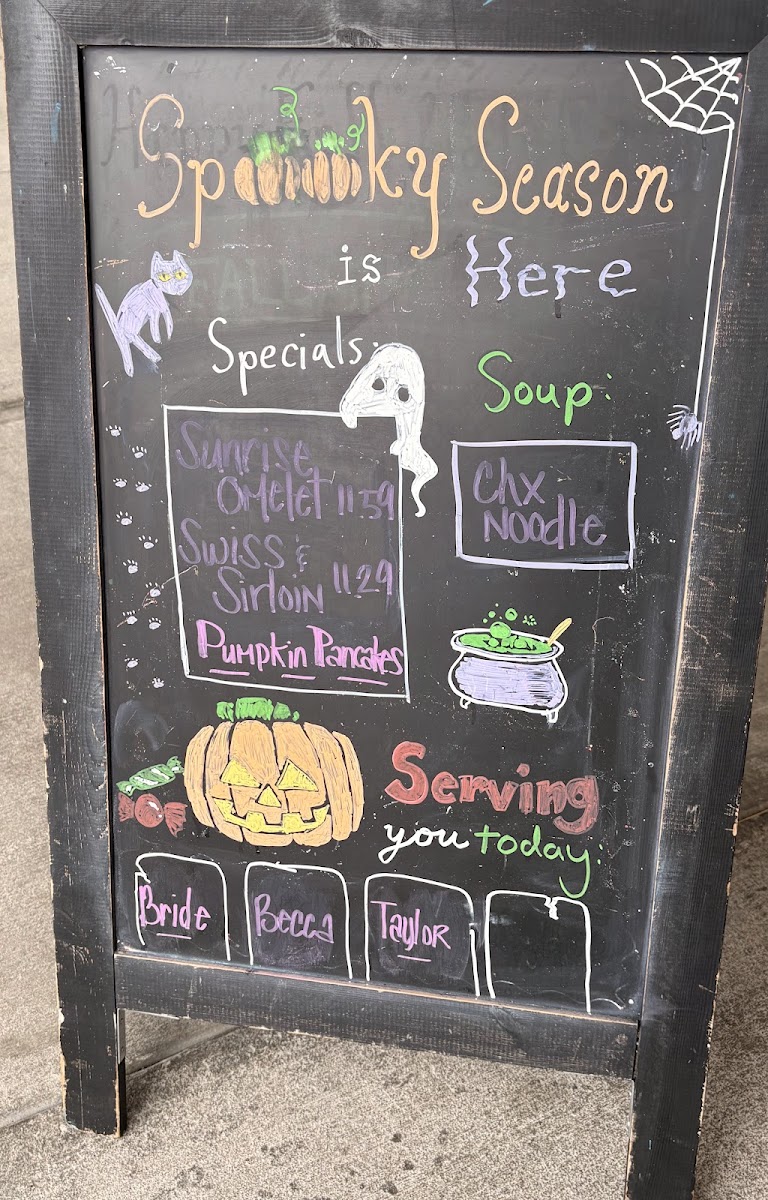 Spooky Season
is Here
Specials:
Soup:
Sunrise
Omelet 11.59
Swiss &
Sirloin 11.29
Pumpkin Pancakes
Chx
Noodle
Serving
you today:
Bride
Becca
Taylor